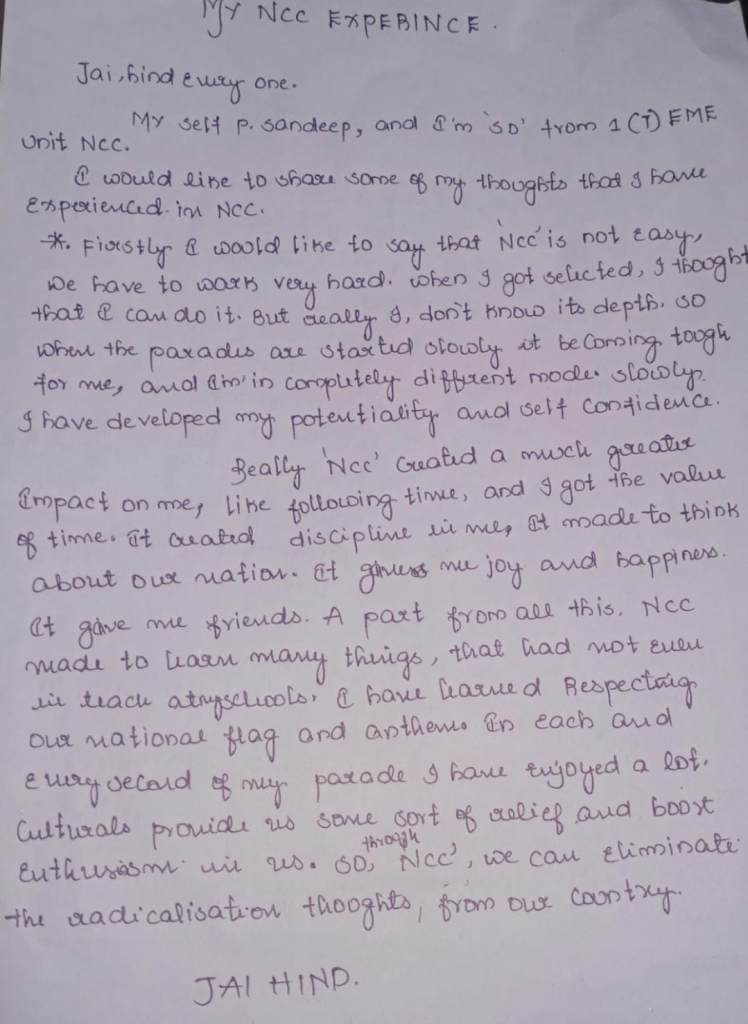 MY NCC EXPERINCE.
Jai, hind every one.
My self P. Sandeep, and I'm 'SD' from 1 (T) EME
Unit NCC.
I would like to share some of my thoughts that I have
Experienced in NCC.
*. Firstly I would like to say that 'NCC' is not easy,
we have to work very hard. when I got selected, I thought
that I can do it. But really I, don't know its depth. so
when the parades are started slowly it becoming tough
for me, and I'm in completely different mode. slowly.
I have developed my potentiality and self confidence.
Really 'NCC' created a much greater
Impact on me, like following time, and I got the value
of time. It created discipline in me, It made to think
about our nation. It gives me joy and happiness.
It gave me friends. A part from all this, NCC
made to learn many things, that had not even
in teach at schools. I have learned Respecting
our national flag and anthem. In each and
every second of my parade I have enjoyed a lot.
Culturals provide us some sort of relief and boost
Enthusiasm in us. SO, through 'NCC', we can eliminate
the radicalisation thoughts, from our country.
JAI HIND.